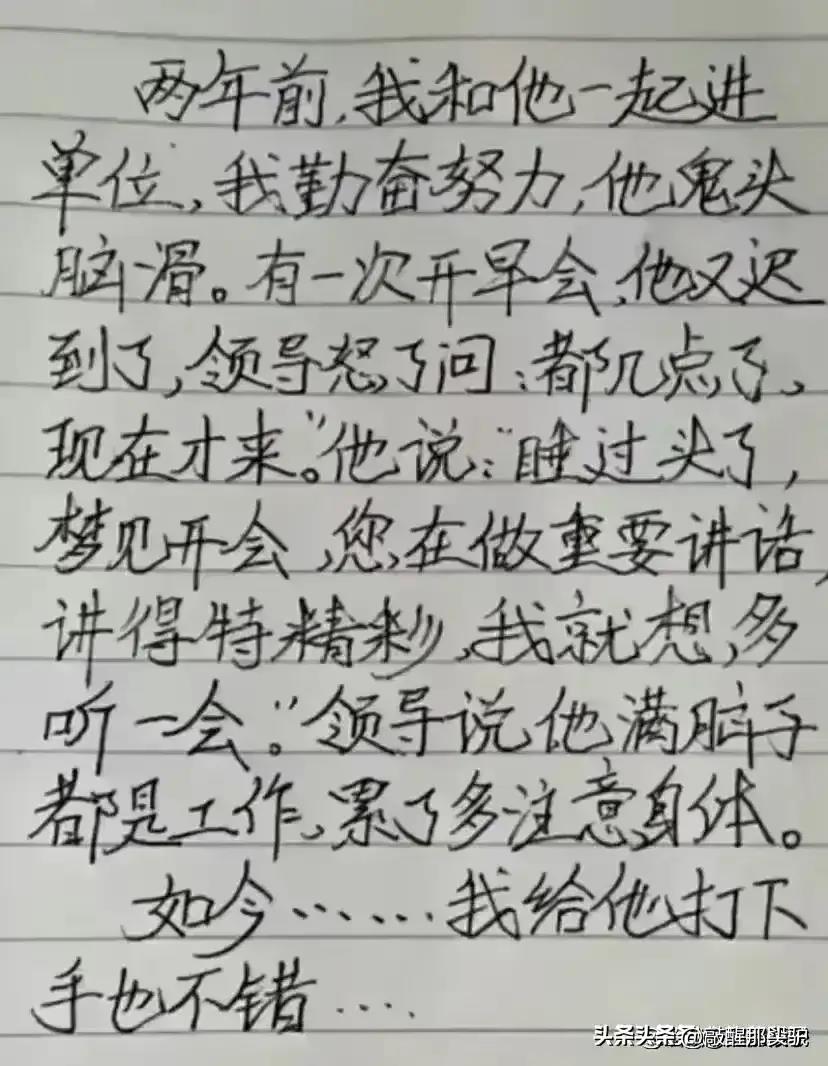 两年前,我和他一起进
单位,我勤奋努力,他鬼头
脑滑。有一次开早会,他又迟
到了,领导怒了问:都几点了,
现在才来。"他说:"睡过头了,
梦见开会,您在做重要讲话,
讲得特精彩,我就想,多
听一会。"领导说他满脑子
都是工作,累了多注意身体。
如今……我给他打下
手也不错....
头条@敲醒那段